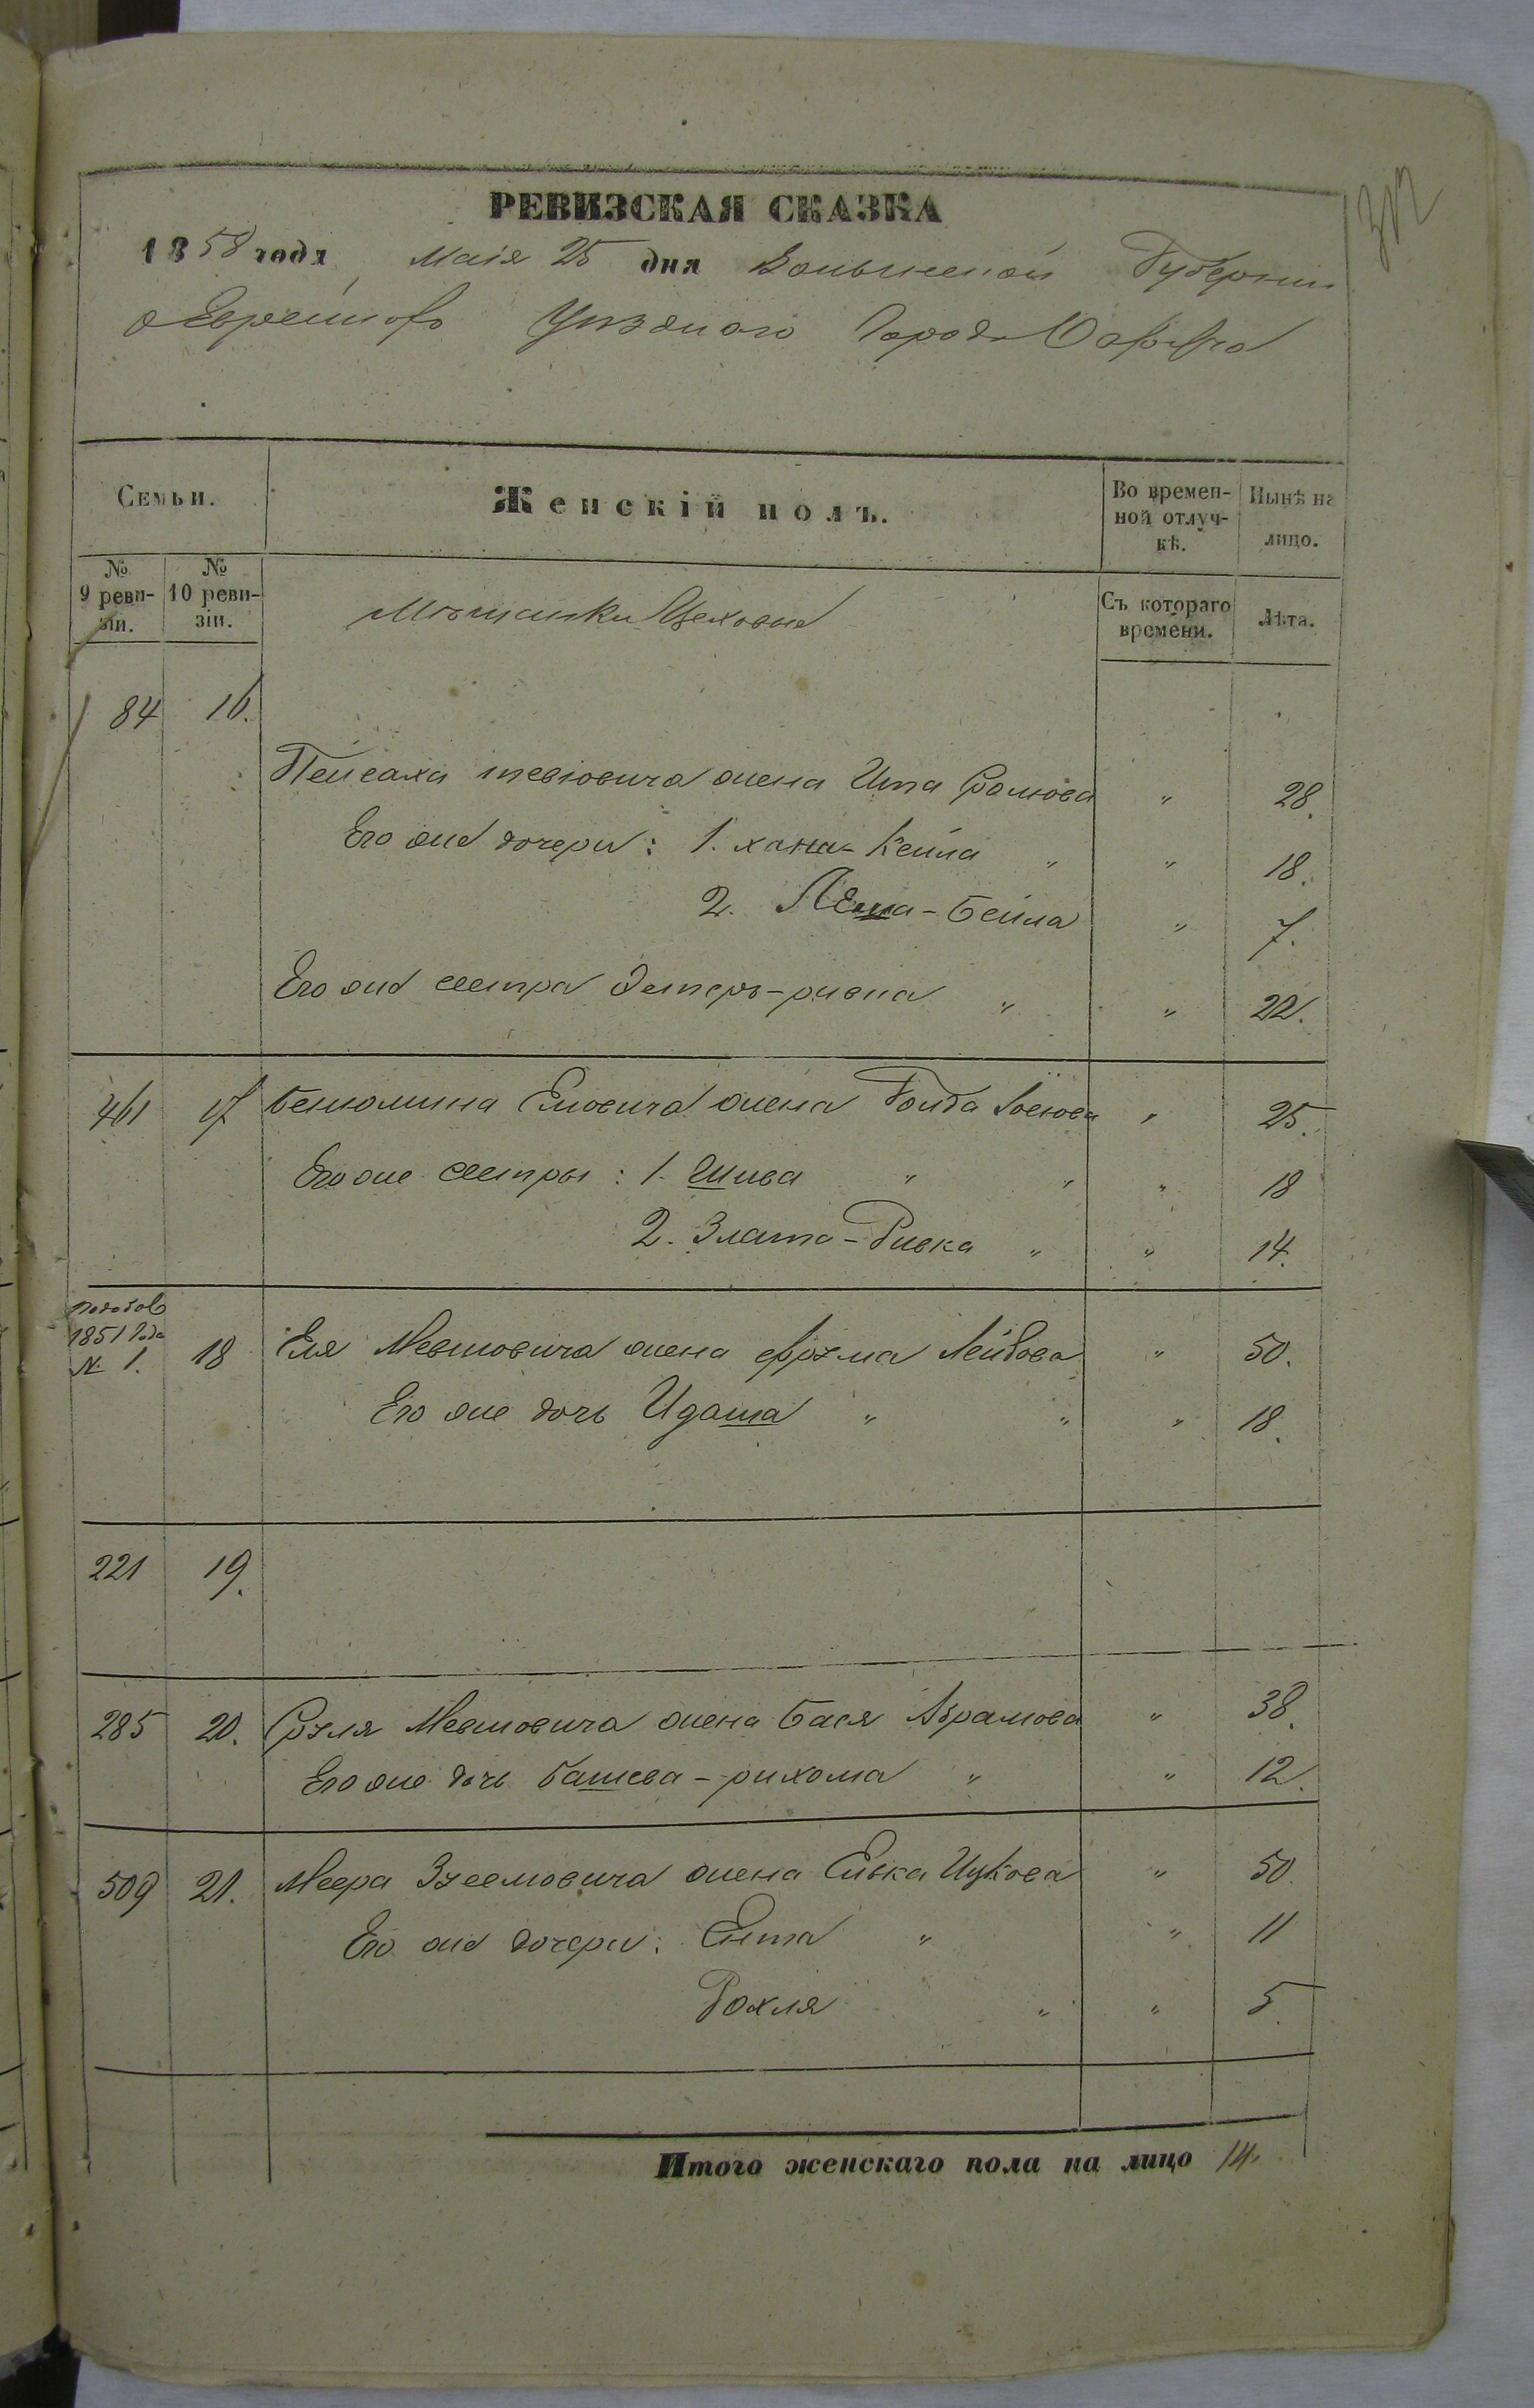 РЕВИЗСКАЯ СКАЗКА
1858 года Маія 25 дня Волынской Губернии
Уѣзднаго Города
Семьи.
Женскій полъ.
Во времен-
ной отлуч-
кѣ.
Нынѣ на
лицо.
№ 9 реви-
зіи.
№ 10 реви-
зіи.
Мѣщанки Цеховые
Съ котораго
времени.
Лѣта.
84 16.
Пейсаха Тевіовича жена Ита Сролiова " 28.
Его же дочери: 1. Хана-Кейла " " 18.
2. Леша-Бейла " 7.
Его же сестра Эстеръ-ривка " " 22.
461 17 Бенюмина Еліовича жена Голда Іосiова " 25.
Его же сестры: 1. Шива " " " 18
2. Злата-Ривка " " 14.
1851 года
№ 1. 18 Еля Мевшовича жена Фрума Лейбова " 50.
Его же дочь Идаша " " " 18.
221 19.
285 20. Сруля Мевшовича жена Бася Абрамова " 38.
Его же дочь Башева-рихома " " 12.
509 21. Меера Зуселіовича жена Сивка Ицкова " 50.
Его же дочери: Ента " " 11
Рохля " " 5.
Итого женскаго пола на лицо 14.